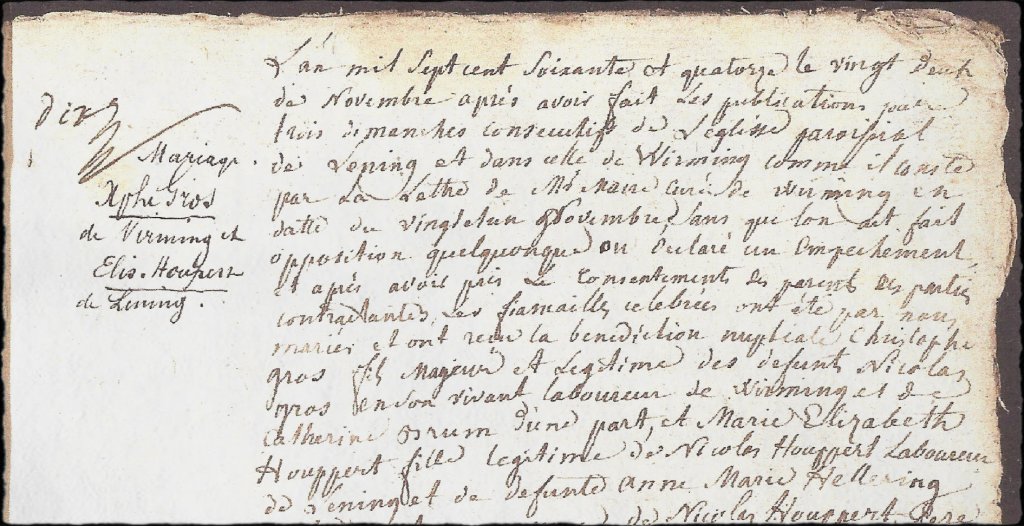 Mariage
Xphe Gros
de Virming et
Elis. Houpert
de Lening.
L'an mil Sept cent Soixante et quatorze le vingt deux
de Novembre aprés avoir fait Les publications
trois dimanches consecutifs de L'eglisse paroissial
de Lening et dans celle de Wirming comme il conste
par La Lettre de Mr Marie curé de Wirming en
datte du vingtetun Novembre, sans que lon ait fait
opposition quelquonque ou declaré un Empechement,
et aprés avoir pris Le Consentement des parents des parties
contractantes, Les fiansailles celebrées ont été par nous
mariés et ont recu la benediction nuptiale Christophe
gros fils Majeur et Legitime des defunt Nicolas
gros en son vivant laboureur de Wirming et de
Catherine d'une part, et Marie Elizabeth
Houppert fille legitime de Nicolas Houppert Laboureur
de Lening et de defunte Anne Marie Hellering
de Nicolas Houppert